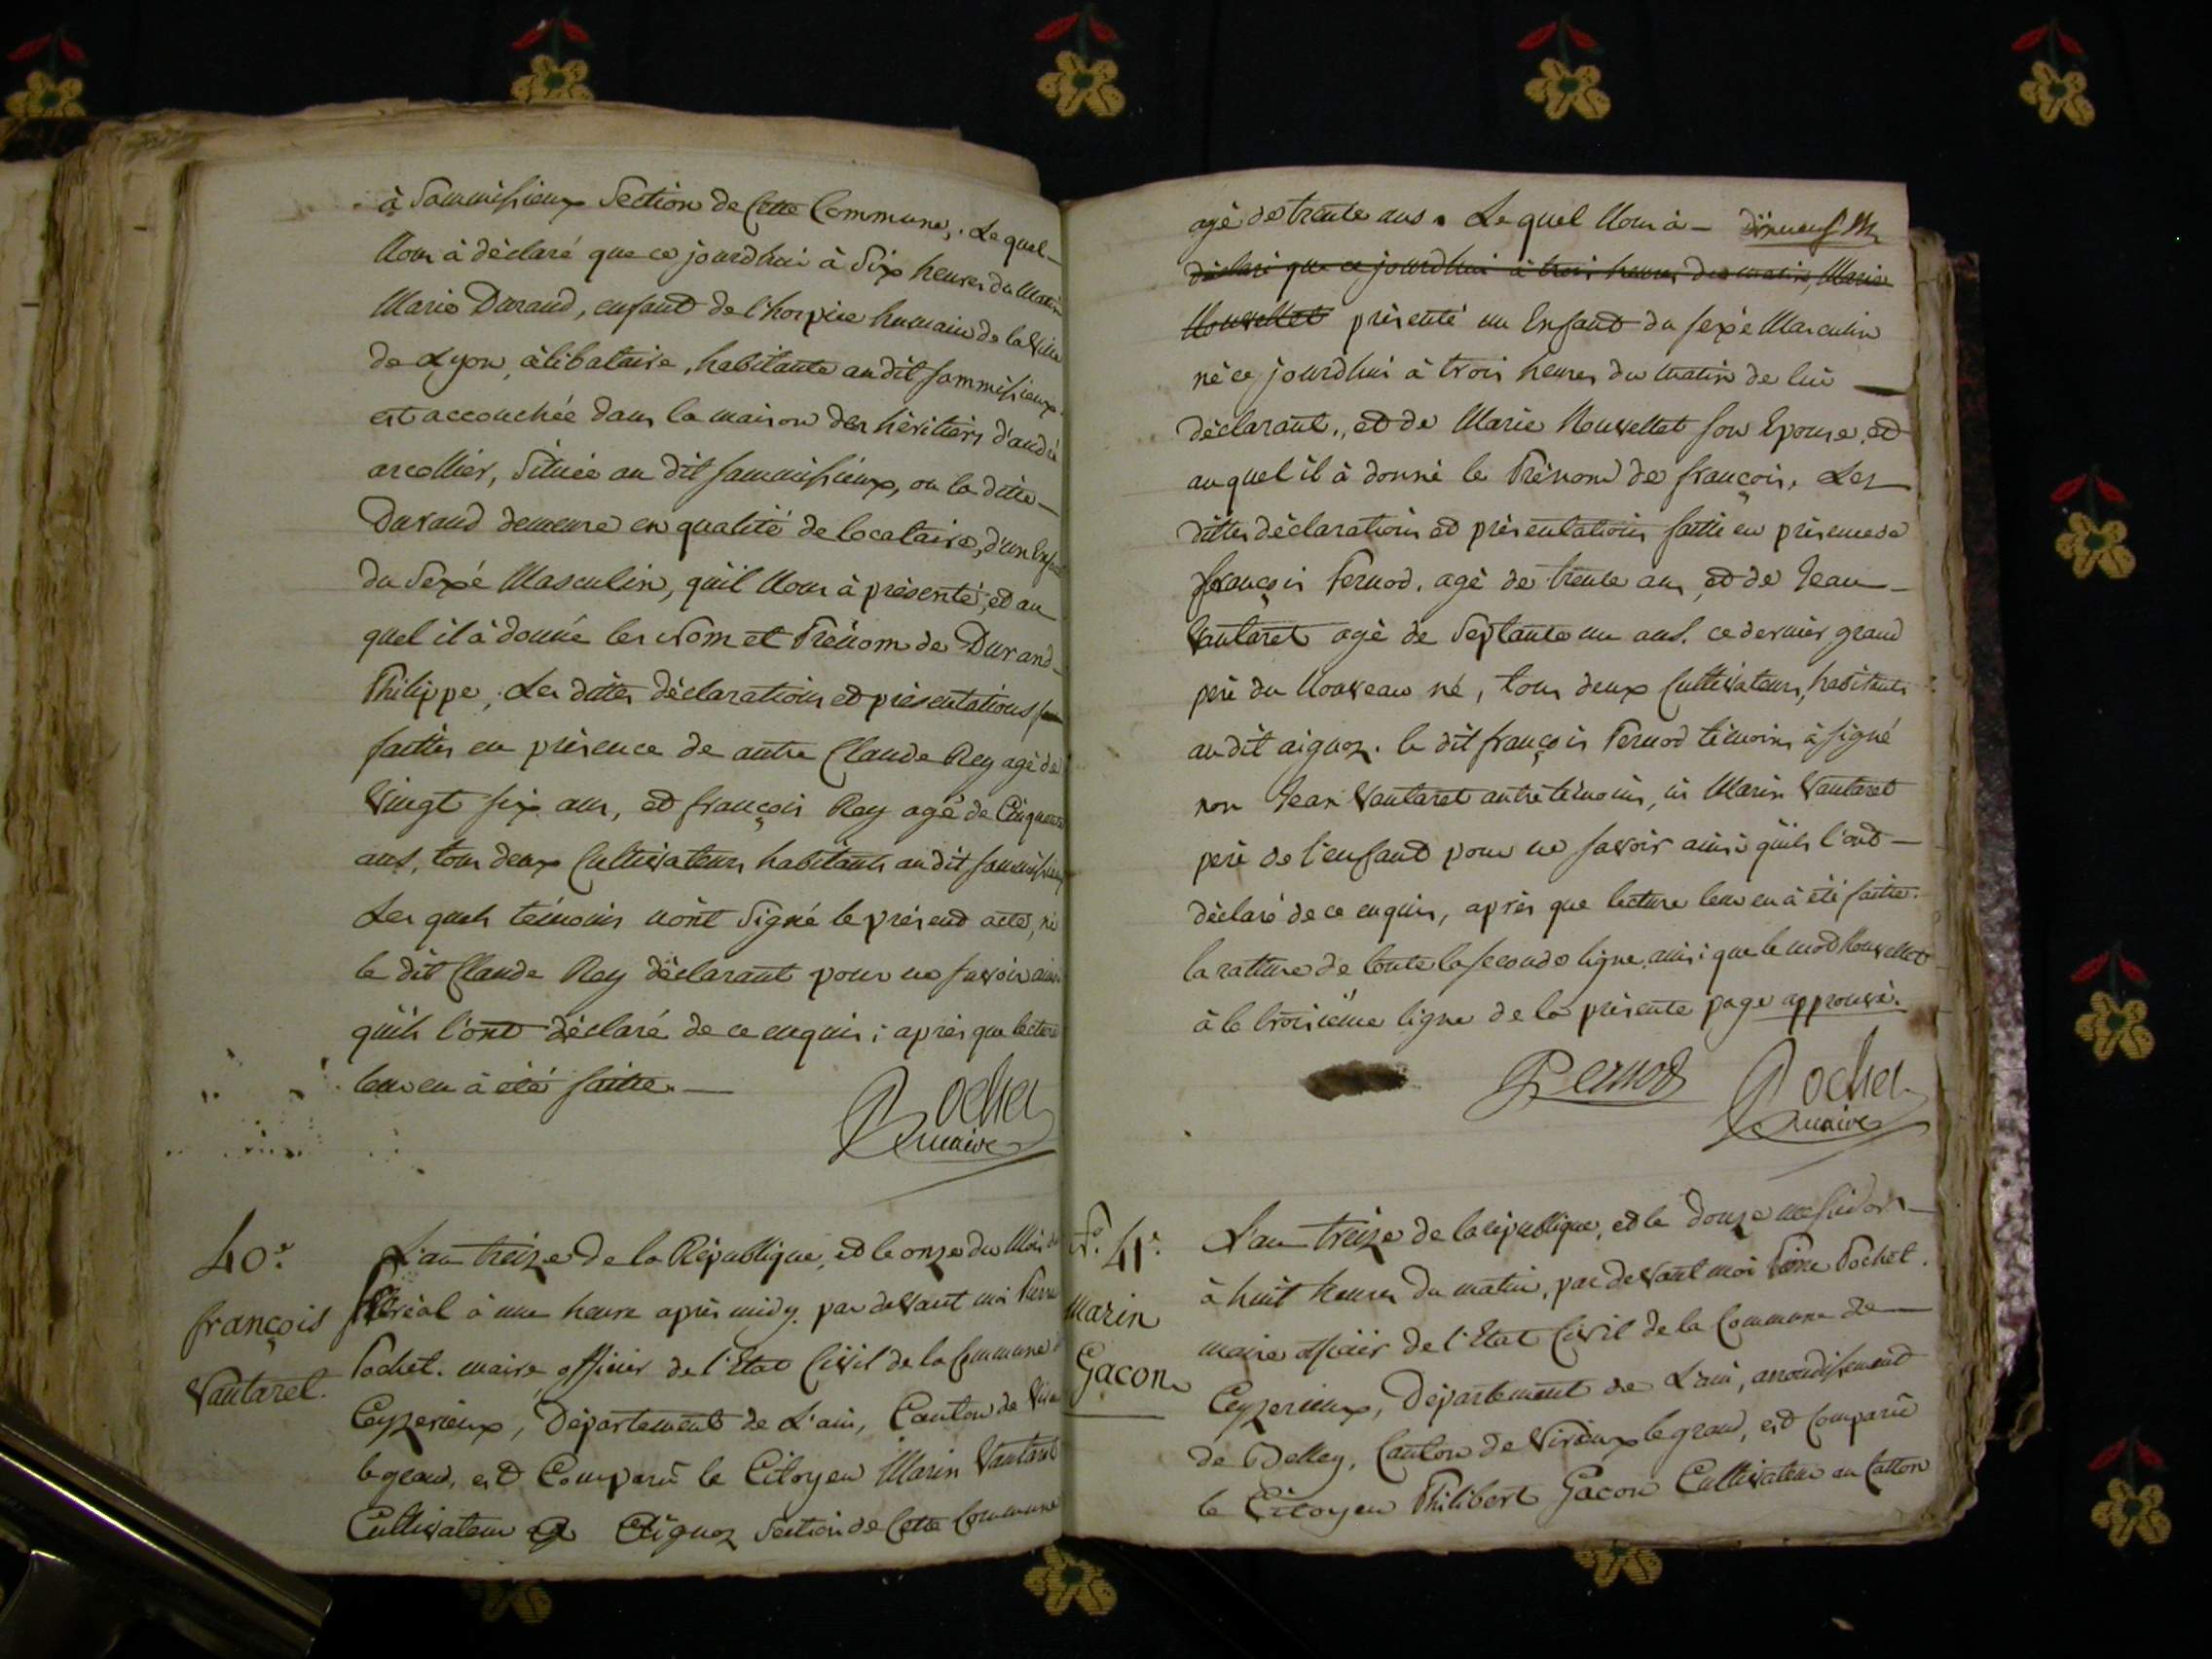 à Sammissieux Section de Cette Commune, . Lequel
Nous à déclaré que ce jourdhui à Six heures du Matin
Marie Durand, enfant de l'hospice humain de la Ville
de Lyon, célibataire, habitante audit Sammissieux
est accouchée dans la maison des héritiers d'andré
arcollier, Située au dit Sammissieux, ou la ditte
Durand demeure en qualité de locataire, d'un Enfant
du Sexé Masculin, quil Nous à présenté, et au
quel il à donné les Nom et Prénom de Durand
Philippe, Les dittes déclarations et présentations
faittes en présence de autre Claude Rey agé de
Vingt six ans, et françois Rey agé de Cinquante
ans, tous deux Cultivateurs habitants audit Sammissieux
Les quels témoins n'ont Signé le présend acte, ni
le dit Claude Rey déclarant pour ne savoir ainsi
quils l'ont déclaré de ce enquis ; après que lecture
leur en à été faitte.
Rochet
maire
40e
françois
Vantaret.
L'an treize de la République, et le onze du Mois de
à une heure après midy. par devant moi Pierre
Rochet. maire officier de l'Etat Civil de la Commune de
Ceyzerieux, Département de L'ain, Canton de
legrand, est Comparû le Citoyen Marin Vantaret
Cultivateur a Aignoz Section de Cette Commune
agé de trente ans. Lequel Nous à
déclaré que ce jourdhui à trois heures du matin, Marie
Nouvellet présenté un Enfant du sexé Masculin
né ce jourdhui à trois heures du matin de lui
déclarant, et de Marie Nouvellet son Epouse, et
auquel il à donné le Prénom de françois, Les
dittes déclarations et présentations faitte en présence de
françois Pernod, agé de trente ans, et de Jean
Vantaret agé de Septante un ans. ce dernier grand
peré du Nouveau né, tous deux Cultivateurs, habitants
audit aignoz. le dit françois Pernod témoins à signé
non Jean Vantaret autre témoins, ni Marin Vantaret
peré de l'enfant pour ne savoir ainsi quils l'ont
déclaré de ce enquis, après que lecture leur en à été faitte.
la rature de toute la seconde ligne, ainsi que le mot Nouvellet
à la troisième ligne de la présente page approuvé.
Pernod
Rochet
maire
No. 41e.
Marin
Gacon
L'an treize de la république, et le douze messidor
à huit heures du matin, par devant moi Pierre Rochet.
maire officier de l'Etat Civil de la Commune de
Ceyzerieux, Département de L'ain, arrondissement
de Belley, Canton de Virieux legrand, est Comparû
le Citoyen Philibert Gacon Cultivateur au Catton